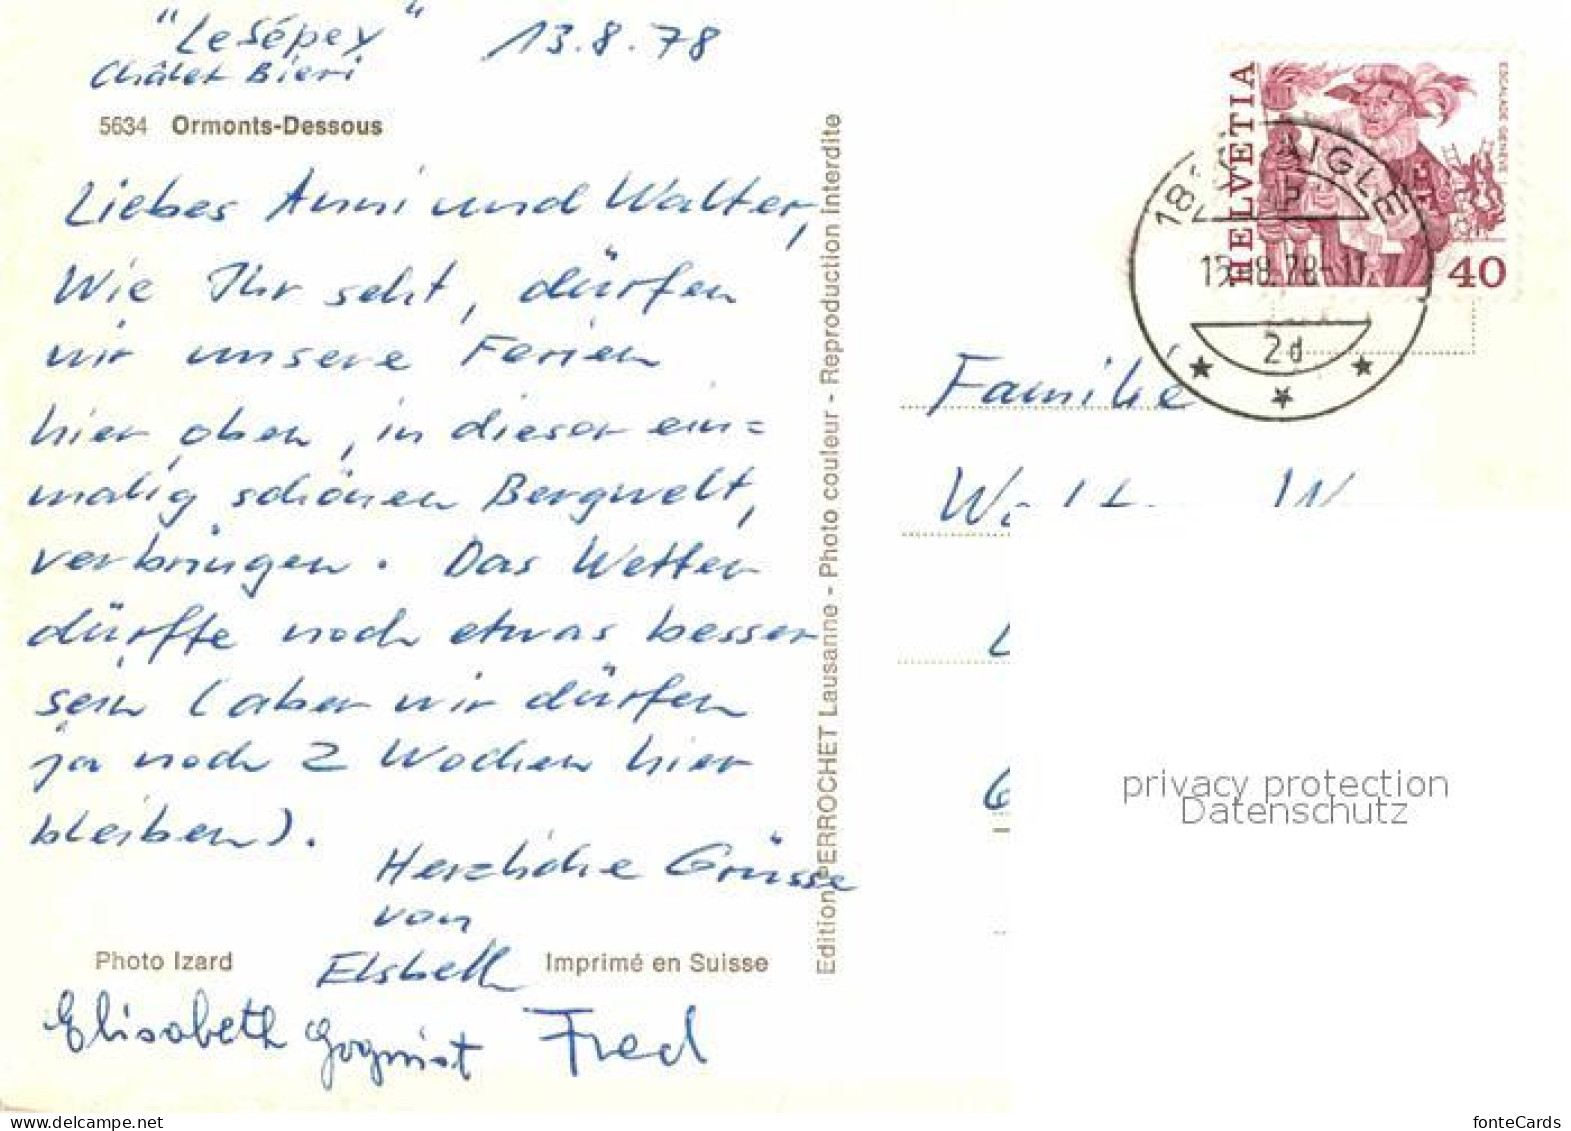 "Le Sépey" 13.8.78
Châlet Bieri
5634 Ormonts-Dessous
Liebes Anni und Walter,
Wie Ihr seht, dürfen
wir unsere Ferien
hier oben, in dieser ein=
malig schönen Bergwelt,
verbringen. Das Wetter
dürfte noch etwas besser
sein (aber wir dürfen
ja noch 2 Wochen hier
bleiben).
Herzliche Grüsse
von
Elsbeth
Photo Izard
Imprimé en Suisse
Elisabeth Fred
Edition PERROCHET Lausanne - Photo couleur - Reproduction interdite
HELVETIA
ESCALADE GENÈVE
40
AIGLE
2d
Familie
privacy protection
Datenschutz
www.ansichtskartenversand.com
fonteCards